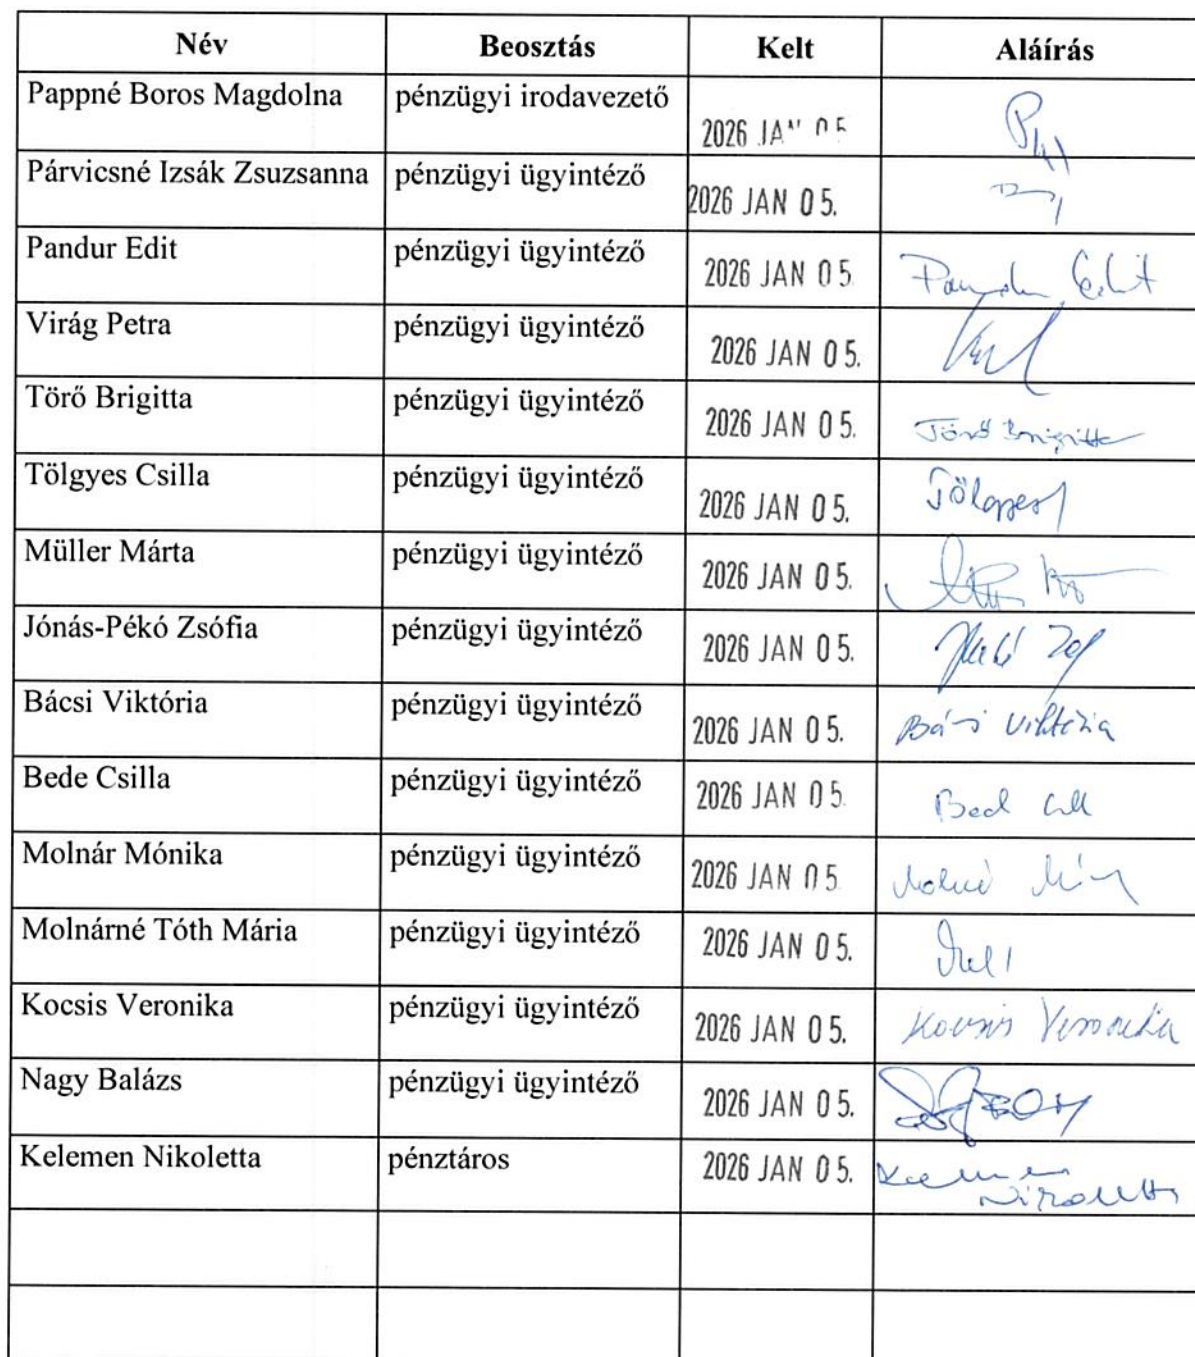 Név Beosztás Kelt Aláírás
Pappné Boros Magdolna pénzügyi irodavezető 2026 JAN 05
Párvicsné Izsák Zsuzsanna pénzügyi ügyintéző 2026 JAN 05.
Pandur Edit pénzügyi ügyintéző 2026 JAN 05 Pandur Edit
Virág Petra pénzügyi ügyintéző 2026 JAN 05.
Törő Brigitta pénzügyi ügyintéző 2026 JAN 05. Törő Brigitta
Tölgyes Csilla pénzügyi ügyintéző 2026 JAN 05. Tölgyes
Müller Márta pénzügyi ügyintéző 2026 JAN 05.
Jónás-Pékó Zsófia pénzügyi ügyintéző 2026 JAN 05.
Bácsi Viktória pénzügyi ügyintéző 2026 JAN 05. Bácsi Viktória
Bede Csilla pénzügyi ügyintéző 2026 JAN 05
Molnár Mónika pénzügyi ügyintéző 2026 JAN 05
Molnárné Tóth Mária pénzügyi ügyintéző 2026 JAN 05.
Kocsis Veronika pénzügyi ügyintéző 2026 JAN 05. Kocsis Veronika
Nagy Balázs pénzügyi ügyintéző 2026 JAN 05.
Kelemen Nikoletta pénztáros 2026 JAN 05. Kelemen
Nikoletta